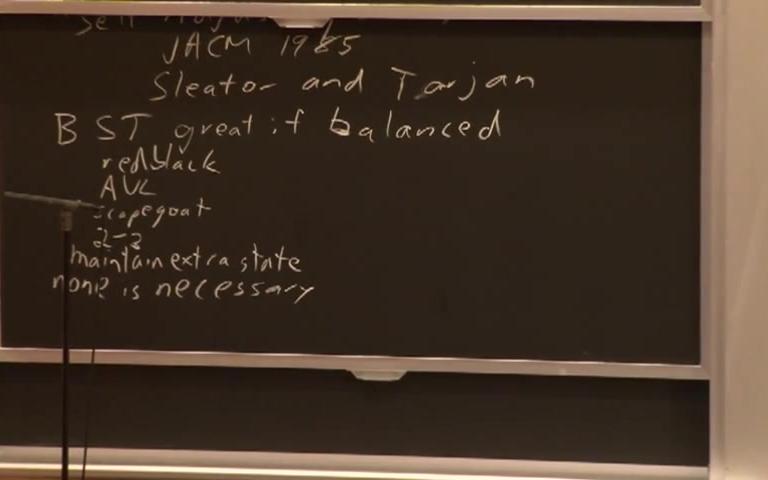 JACM 1985
Sleator and Tarjan
BST great if balanced
redblack
AVL
scapegoat
2-3
maintain extra state
none is necessary